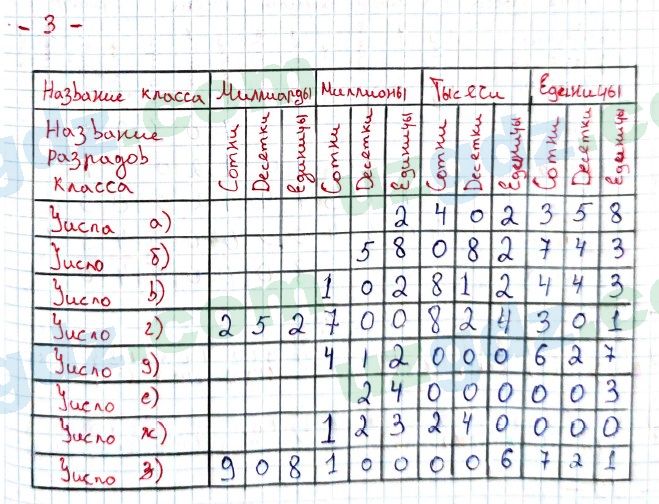 - 3 -
Название класса Миллиарды Миллионы Тысячи Единицы
Название разрядов класса Сотни Десетки Единицы Сотни Десетки Единицы Сотни Десетки Единицы Сотни Десетки Единицы
Числа а) 2 4 0 2 3 5 8
Число б) 5 8 0 8 2 7 4 3
Число в) 1 0 2 8 1 2 4 4 3
Число г) 2 5 2 7 0 0 8 2 4 3 0 1
Число д) 4 1 2 0 0 0 6 2 7
Число е) 2 4 0 0 0 0 0 3
Число ж) 1 2 3 2 4 0 0 0 0
Число з) 9 0 8 1 0 0 0 0 6 7 2 1